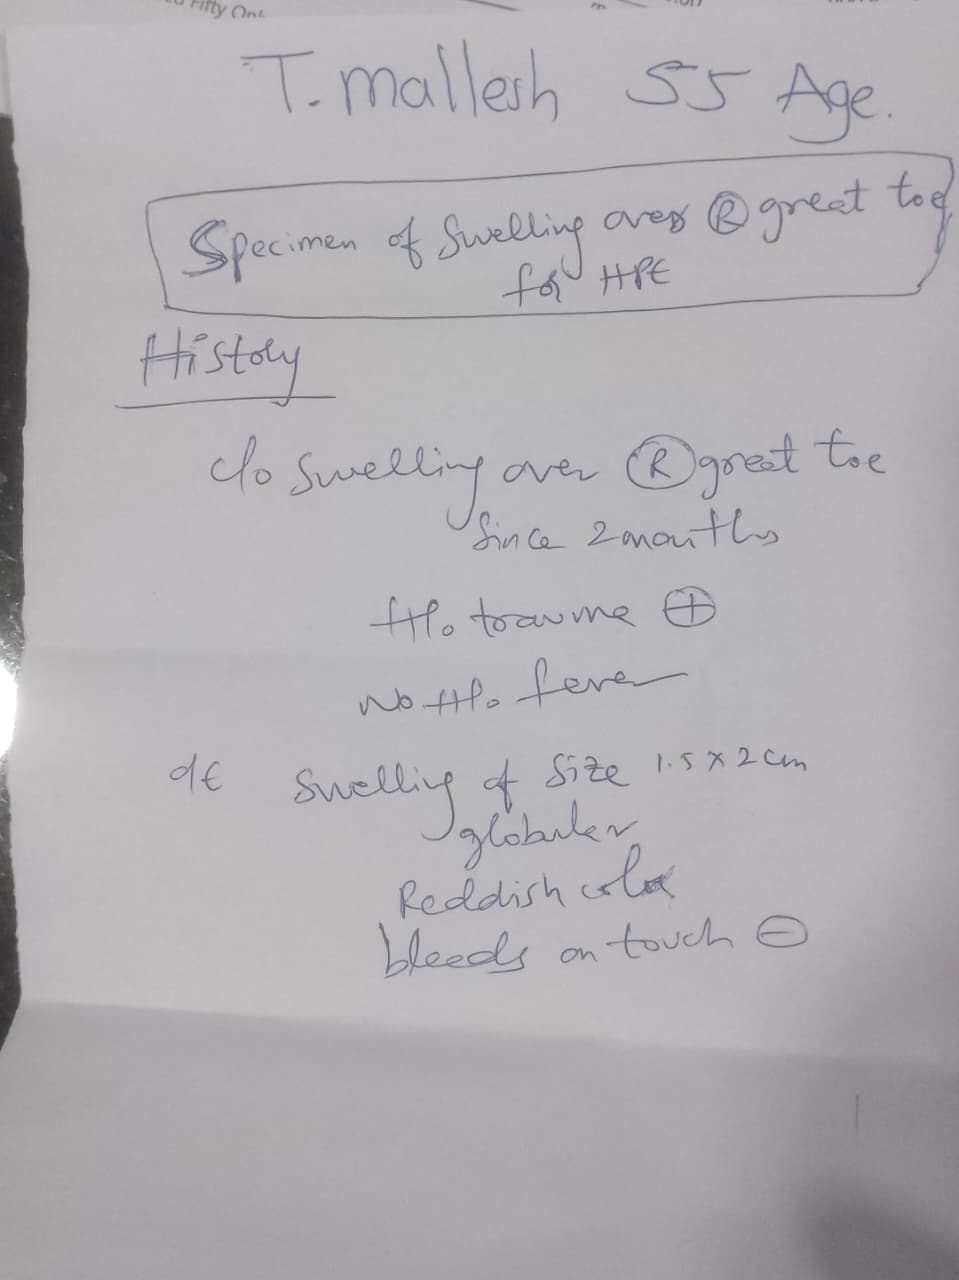 Fifty One
T. mallesh 55 Age.
Specimen of Swelling over Ⓡ great toe
for HPE
History
c/o Swelling over Ⓡ great toe
Since 2 months
H/o trauma ⊕
No H/o fever
o/E Swelling of Size 1.5 x 2 cm
globular
Reddish color
bleeds on touch ⊖